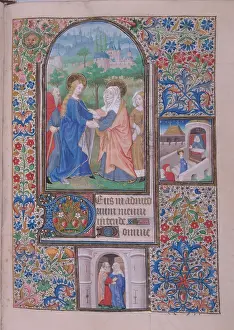 DEus in adiuto
rium meum
intende
Domine